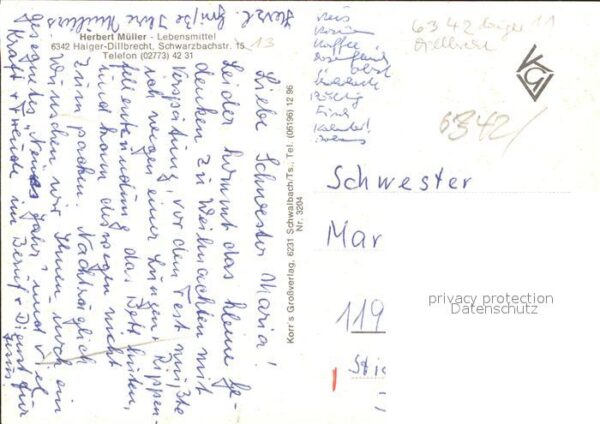 Herbert Müller - Lebensmittel
6342 Haiger-Dillbrecht, Schwarzbachstr. 15
Telefon (02773) 42 31
13
Liebe Schwester Maria!
Leider kommt das kleine Ge-
denken zu Weihnachten mit
Verspätung, vor dem Fest mußte
ich wegen einer Lungen- Rippen-
fellentzündung das Bett hüten,
und kam deswegen nicht
zum packen. Nachträglich
wünschen wir Ihnen noch ein
gesegnetes Neues Jahr und viel
Kraft + Freude im Beruf + Dienst für
Jesus
Herzl. Grüße Ihre Müllers
Korr's Großverlag, 6231 Schwalbach/Ts., Tel. (06196) 12 96
Nr. 3204
Reis
Kaffee
Kalender!
6342 Haiger 11
Dillbrecht
KGV
6342/
Schwester
Mar
119
Sti
privacy protection
Datenschutz